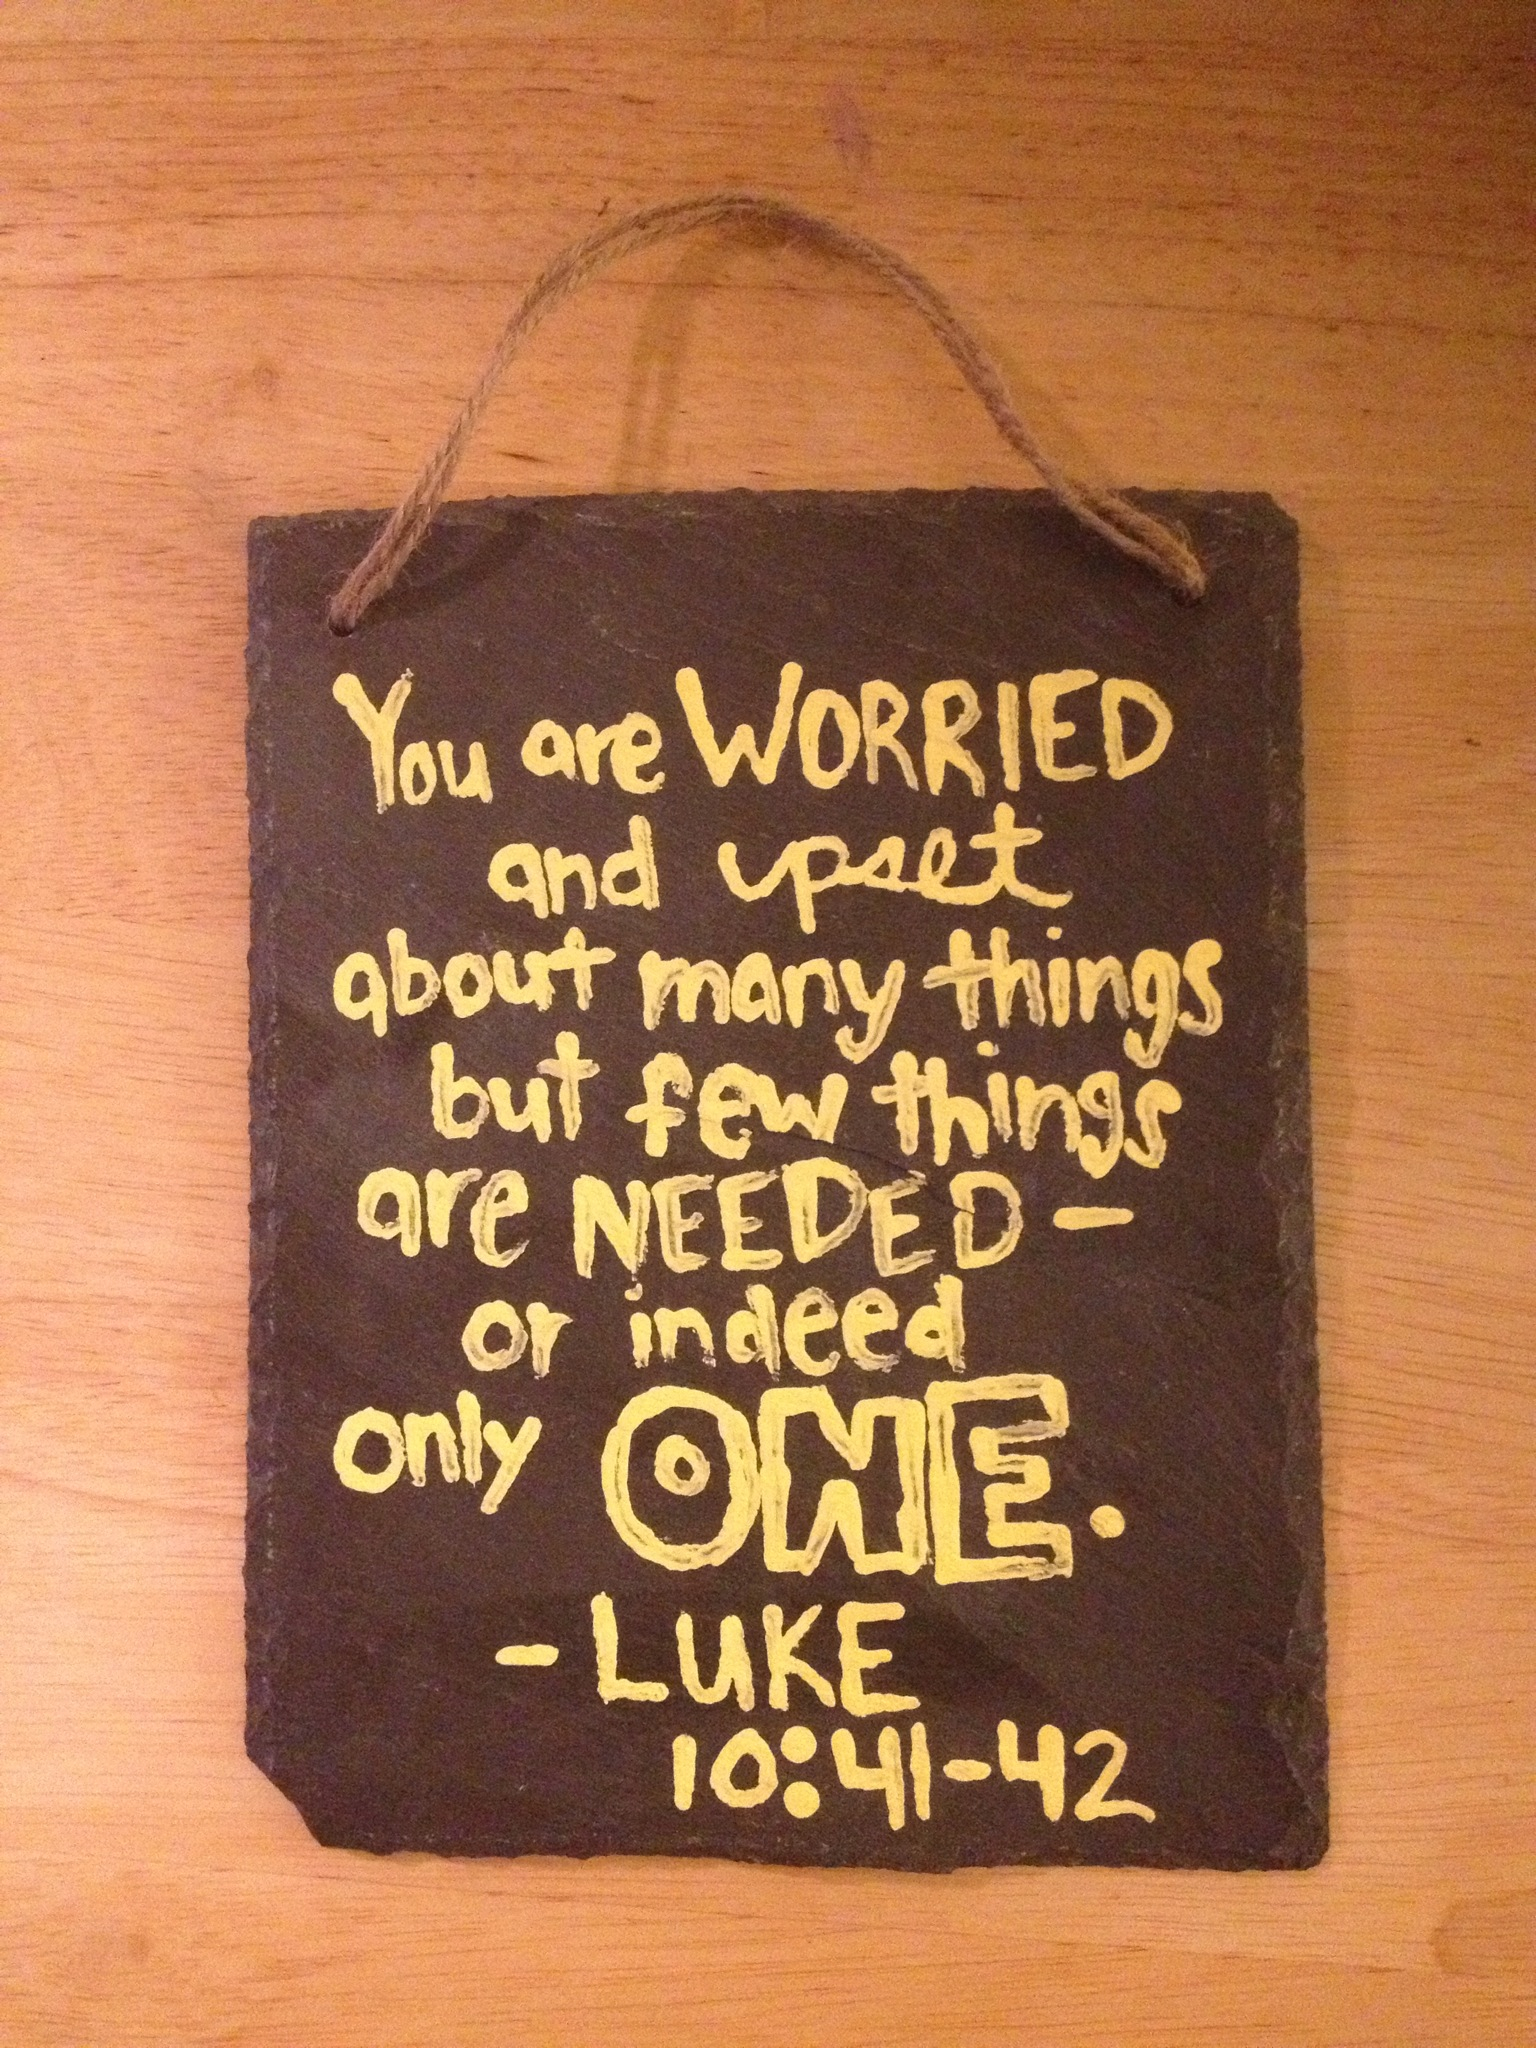 You are WORRIED
and upset
about many things
but few things
are NEEDED -
or indeed
only ONE.
- LUKE
10:41-42